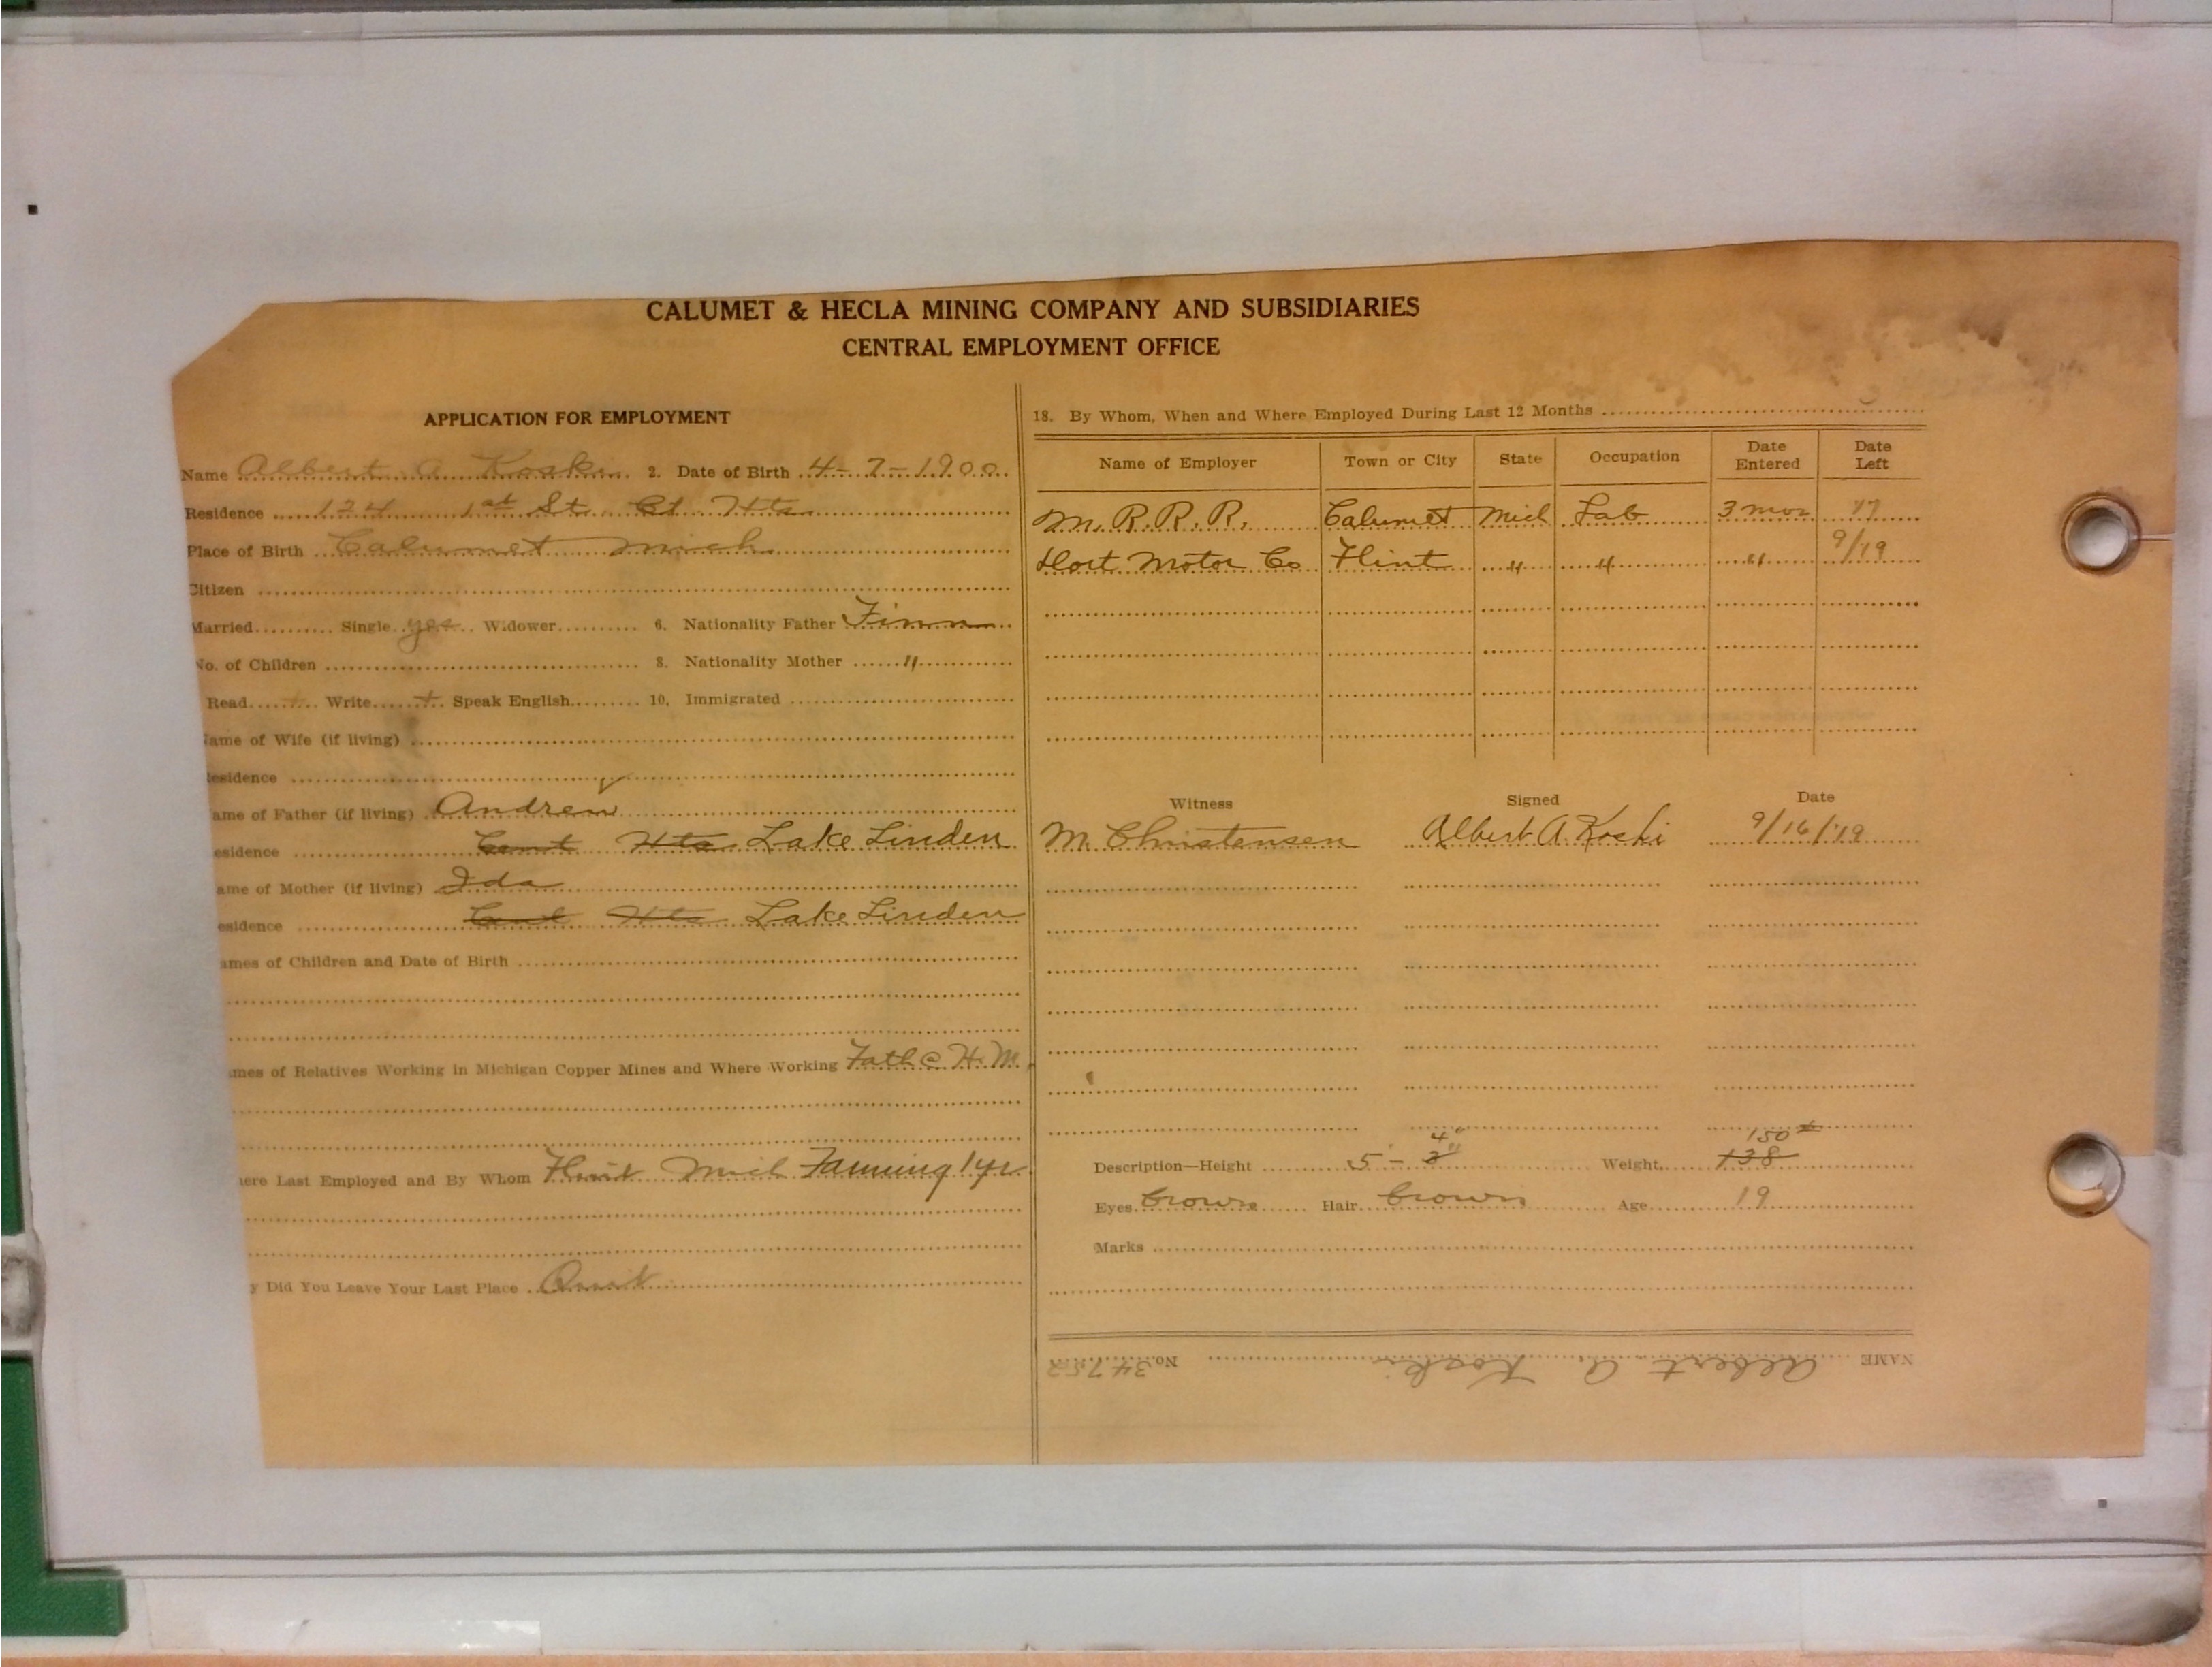 CALUMET & HECLA MINING COMPANY AND SUBSIDIARIES
CENTRAL EMPLOYMENT OFFICE
APPLICATION FOR EMPLOYMENT
Name Albert A Koski 2. Date of Birth 4-7-1900
Residence 124 1st St. Hts
Place of Birth Calumet Mich
Citizen
Married Single yes Widower 6. Nationality Father Finn
No. of Children 8. Nationality Mother "
Read + Write + Speak English 10. Immigrated
ame of Wife (if living)
esidence
ame of Father (if living) Andrew
esidence Cent Hts Lake Linden
ame of Mother (if living) Ida
esidence Cent Hts Lake Linden
ames of Children and Date of Birth
mes of Relatives Working in Michigan Copper Mines and Where Working Fath @ H. M.
ere Last Employed and By Whom Flint Mich Farming 1 yr.
y Did You Leave Your Last Place Quit
18. By Whom, When and Where Employed During Last 12 Months
Name of Employer Town or City State Occupation Date Entered Date Left
M. R. R. R. Calumet Mich Lab 3 mos 17
Dort Motor Co Flint " " " 9/19
Witness Signed Date
M. Christensen Albert A. Koski 9/16/19
Description—Height 5 - 3" 4" Weight 138 150 #
Eyes brown Hair brown Age 19
Marks
NAME Albert A. Koski No. 34752